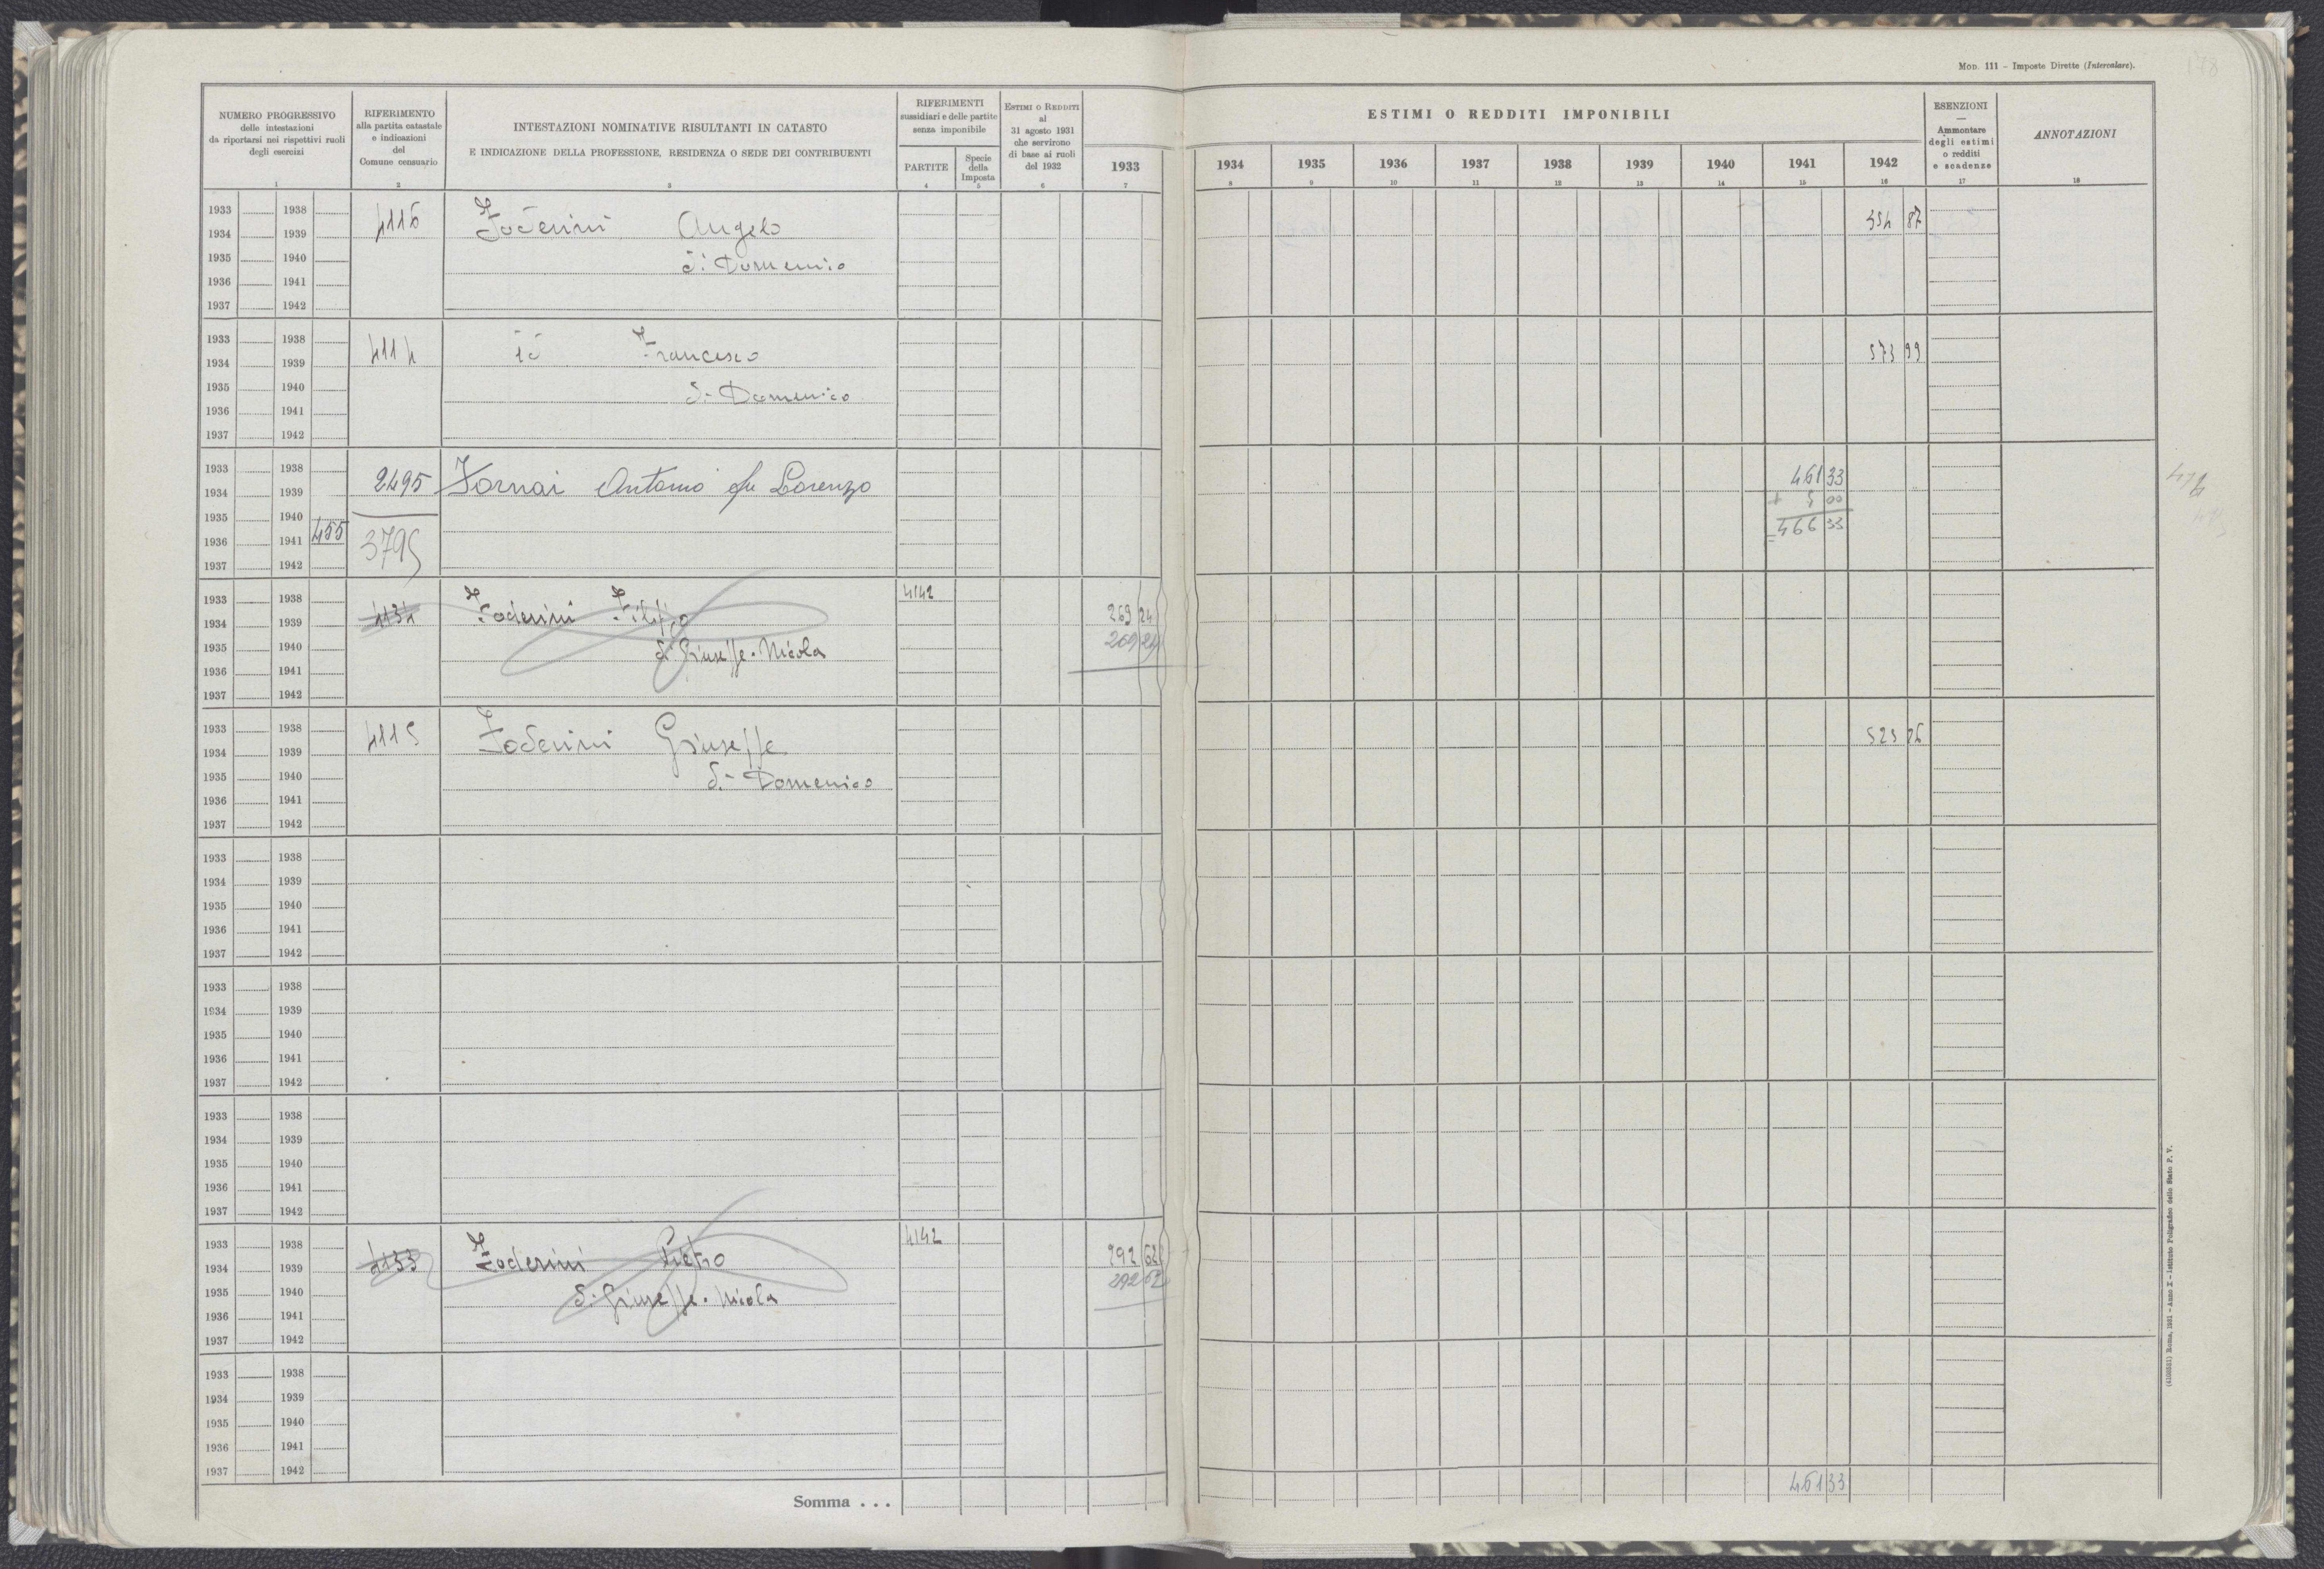 MOD. 111 – Imposte Dirette (Intercalare).
178
NUMERO PROGRESSIVO
delle intestazioni
da riportarsi nei rispettivi ruoli
degli esercizi
1
RIFERIMENTO
alla partita catastale
e indicazioni
del
Comune censuario
2
INTESTAZIONI NOMINATIVE RISULTANTI IN CATASTO
E INDICAZIONE DELLA PROFESSIONE, RESIDENZA O SEDE DEI CONTRIBUENTI
3
RIFERIMENTI
sussidiari e delle partite
senza imponibile
PARTITE
4
Specie
della
Imposta
5
ESTIMI O REDDITI
al
31 agosto 1931
che servirono
di base ai ruoli
del 1932
6
1933
7
ESTIMI O REDDITI IMPONIBILI
1934 1935 1936 1937 1938 1939 1940 1941 1942
8 9 10 11 12 13 14 15 16
ESENZIONI
—
Ammontare
degli estimi
o redditi
e scadenze
17
ANNOTAZIONI
18
1933 1938
1934 1939 4116 Foderini Angelo 354 87
1935 1940 di Domenico
1936 1941
1937 1942
1933 1938
1934 1939 4114 id Francesco 573 99
1935 1940 di Domenico
1936 1941
1937 1942
1933 1938
1934 1939 2495 Fornai Antonio fu Lorenzo 461 33
1935 1940 + 5 00
1936 1941 455 3795 = 466 33
1937 1942
1933 1938 4142
1934 1939 4134 Foderini Filippo 269 24
1935 1940 di Giuseppe-Nicola 269 24
1936 1941
1937 1942
1933 1938
1934 1939 4115 Foderini Giuseppe 523 26
1935 1940 di Domenico
1936 1941
1937 1942
1933 1938
1934 1939
1935 1940
1936 1941
1937 1942
1933 1938
1934 1939
1935 1940
1936 1941
1937 1942
1933 1938
1934 1939
1935 1940
1936 1941
1937 1942
1933 1938 4142
1934 1939 4133 Foderini Pietro 292 62
1935 1940 di Giuseppe-Nicola 292 62
1936 1941
1937 1942
1933 1938
1934 1939
1935 1940
1936 1941
1937 1942
Somma . . . 461 33
(4103521) Roma, 1931 – Anno X – Istituto Poligrafico dello Stato P. V.